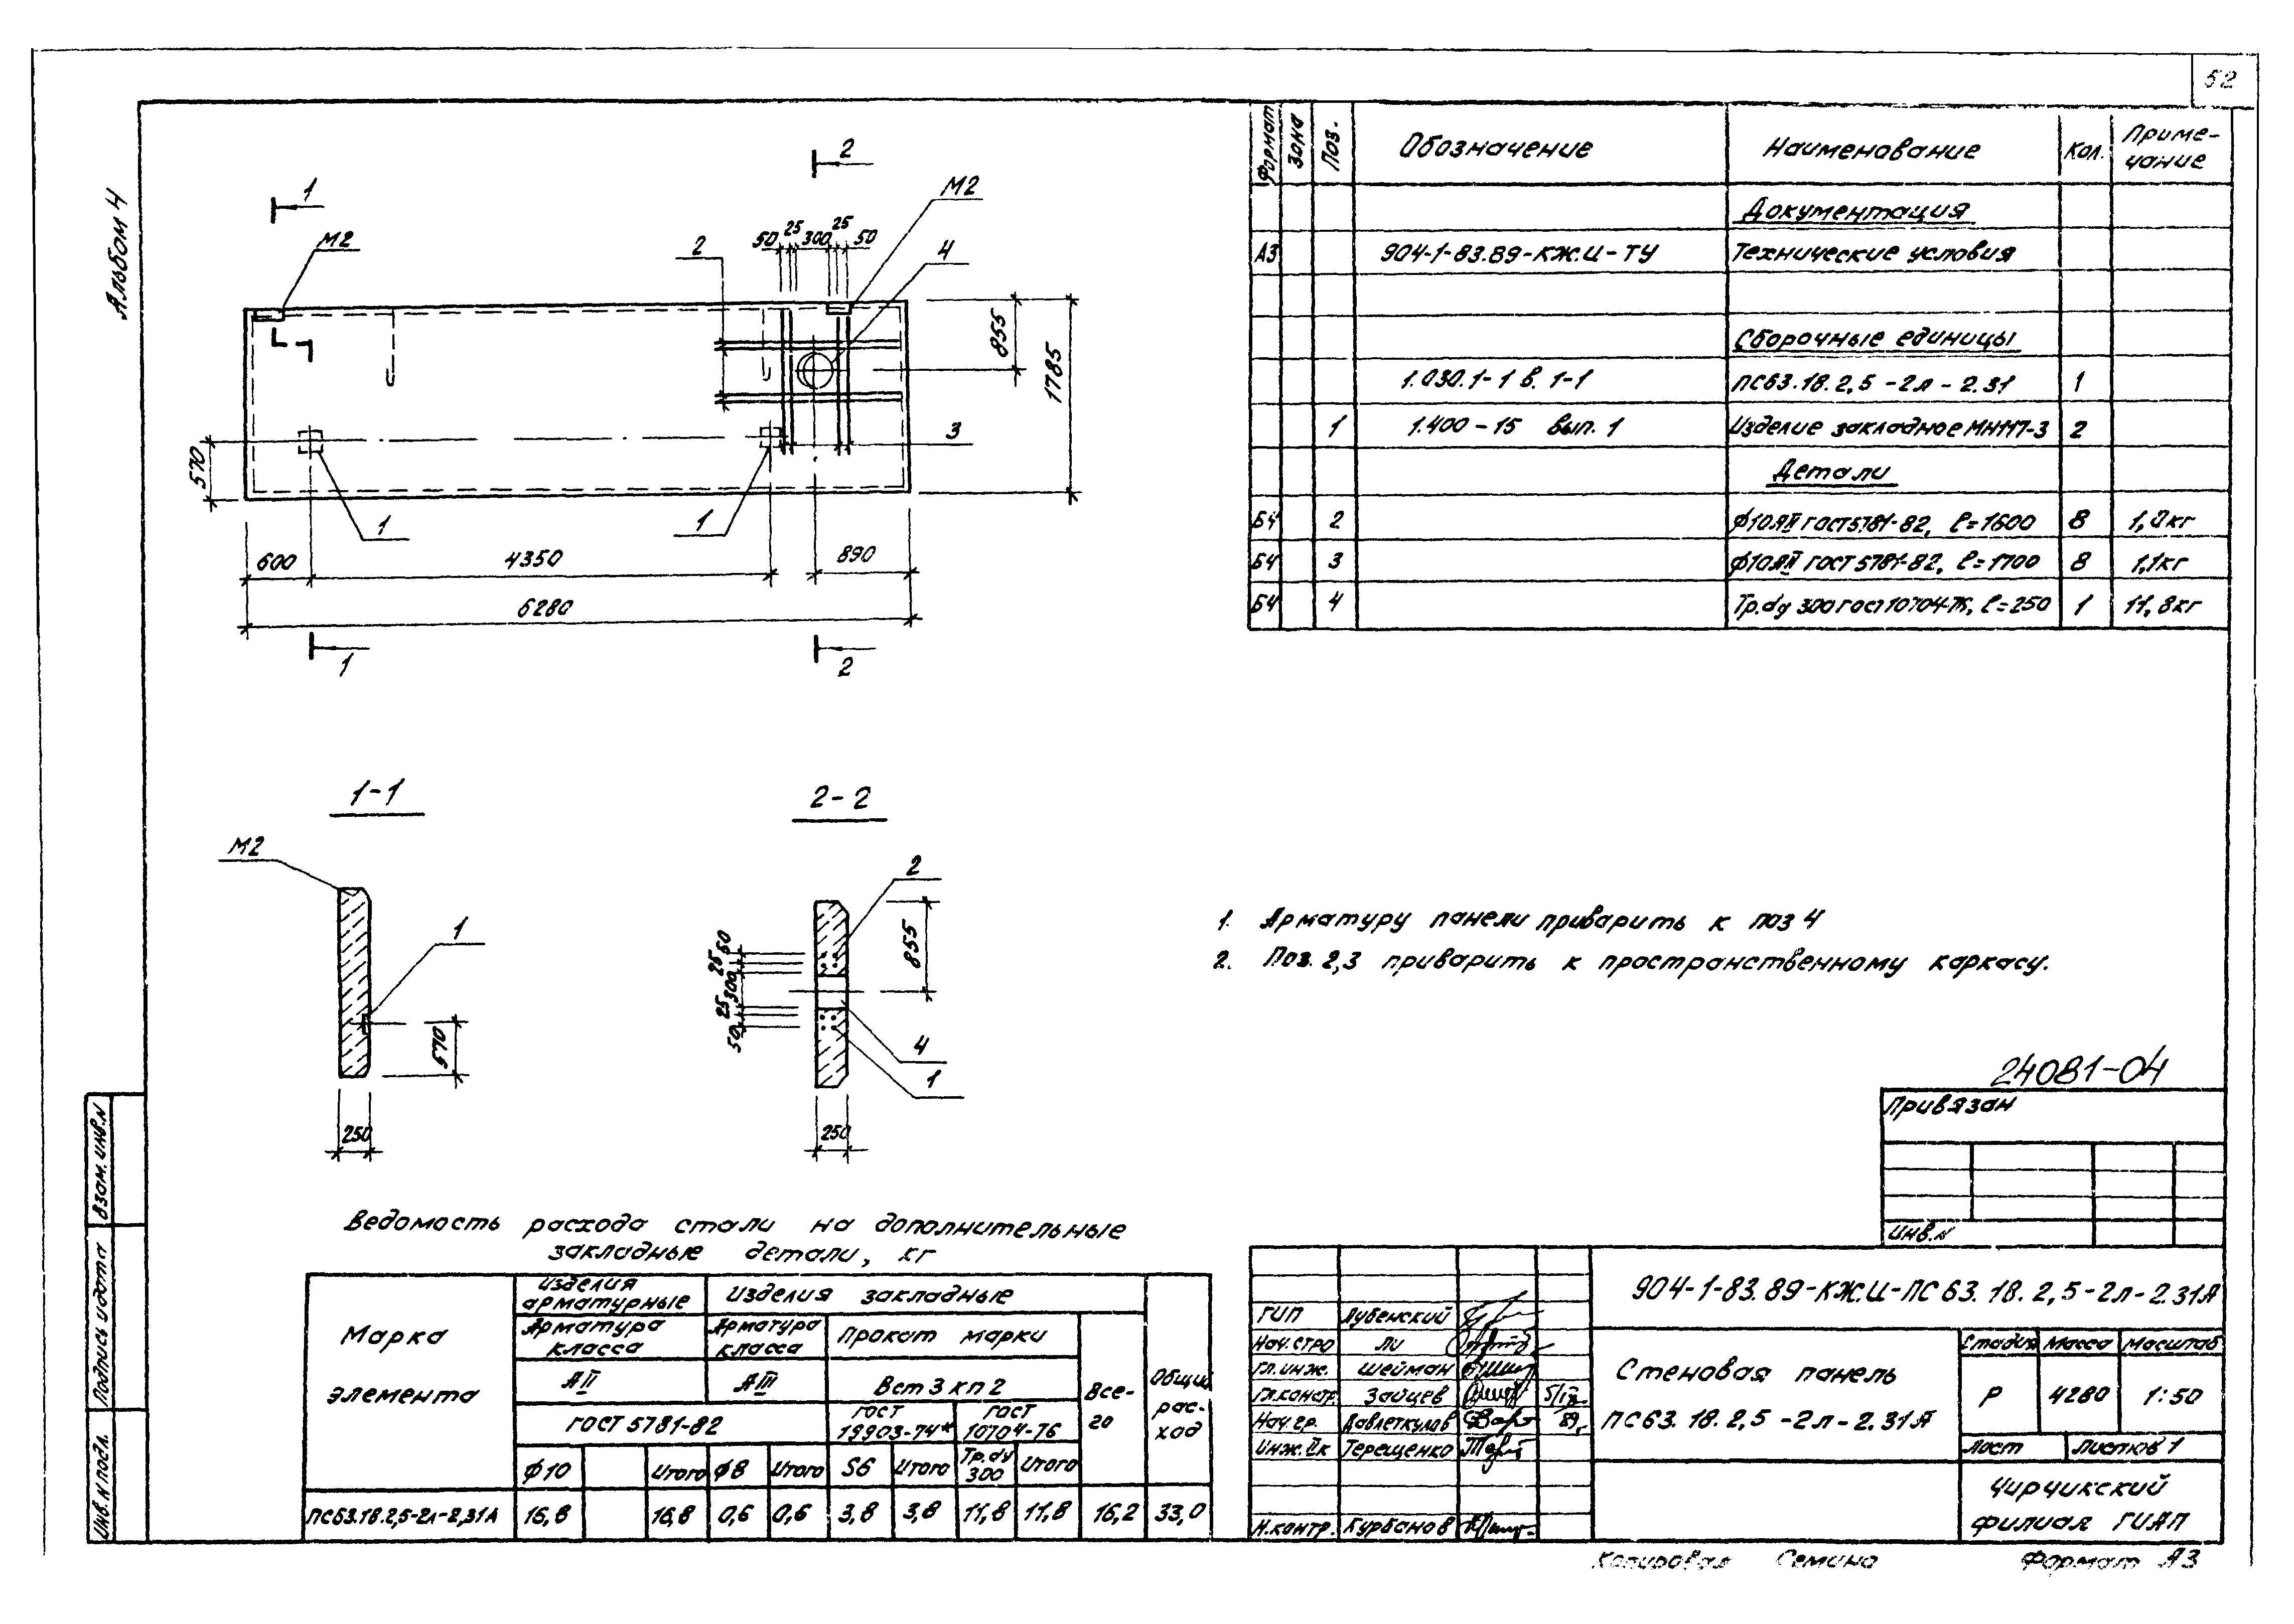 52
Альбом 4
1
2
М2
М2
2
4
50 25 300 25 50
855
1785
3
570
1
1
600
4350
890
6280
1
2
1-1
2-2
М2
1
570
250
2
855
50 25 300 25 50
4
1
250
Формат Зона Поз. Обозначение Наименование Кол. Приме-
чание
Документация
А3 904-1-83.89-КЖ.И-ТУ Технические условия
Сборочные единицы
1.030.1-1 в. 1-1 ПС63.18.2,5-2л-2.31 1
1 1.400-15 вып. 1 Изделие закладное МН117-3 2
Детали
Б4 2 ф10АII ГОСТ 5781-82, ℓ=1600 8 1,0кг
Б4 3 ф10АII ГОСТ 5781-82, ℓ=1700 8 1,1кг
Б4 4 Тр.dу 300 ГОСТ 10704-76, ℓ=250 1 11,8кг
1. Арматуру панели приварить к поз 4
2. Поз. 2,3 приварить к пространственному каркасу.
24081-04
Привязан
Инв.N
Взам. инв.N
Подпись и дата
Инв. N подл.
Ведомость расхода стали на дополнительные
закладные детали, кг
Марка
элемента
Изделия
арматурные
Изделия закладные
Арматура
класса
Арматура
класса
Прокат марки
АII АIII Вст 3 кп 2
Все-
го
Общий
рас-
ход
ГОСТ 5781-82
ГОСТ
19903-74*
ГОСТ
10704-76
ф10 Итого ф8 Итого S6 Итого Тр.dу
300 Итого
ПС63.18.2,5-2л-2,31А 16,8 16,8 0,6 0,6 3,8 3,8 11,8 11,8 16,2 33,0
904-1-83.89-КЖ.И-ПС63.18.2,5-2л-2.31А
ГИП Лубенский
Нач.стро Ли
Гл.инж. Шейман
Гл.констр. Зайцев
Нач.гр. Давлеткулов 89г
Инж. IIк Терещенко
Н.контр. Курбанов
Стеновая панель
ПС63.18.2,5-2л-2.31А
Стадия Масса Масштаб
Р 4280 1:50
Лист Листов 1
Чирчикский
филиал ГИАП
Копировал Семина Формат А3